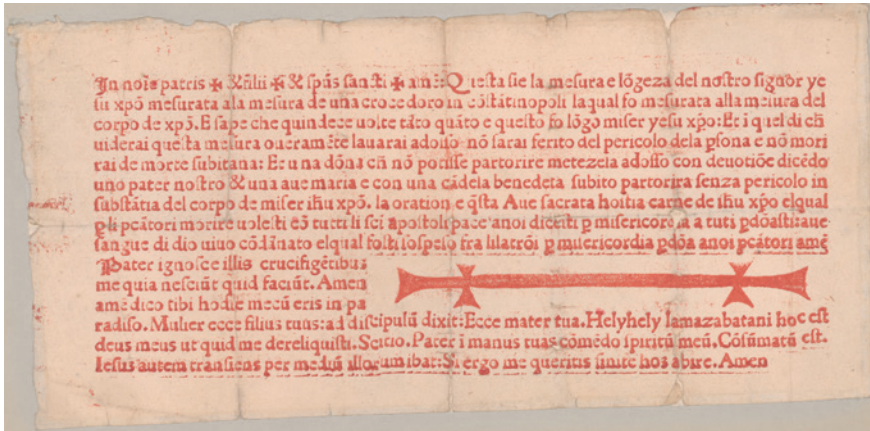 In noie patris ✠ &filii ✠ & spũs sancti ✠ amẽ: Questa sie la mesura e lõgeza del nostro signor ye
su xpõ mesurata ala mesura de una croce doro in cõstãtinopoli la qual fo mesurata alla mesura del
corpo de xpõ. E sape che quindece uolte tãto quãto e questo fo lõgo miser yesu xpo: Et i quel di ch̃
uiderai questa mesura oueramẽte lauarai adosso nõ sarai ferito del pericolo dela p̱sona e nõ mori
rai de morte subitana: Et una dõna ch̃ nõ potisse partorire metezela adosso con deuotiõe dicẽdo
uno pater nostro & una aue maria e con una cãdela benedeta subito partorira senza pericolo in
substãtia del corpo de miser ihu xpõ. la oration e q̃sta Aue sacrata hostia carne de ihu xpo elqual
p̱ li pcãtori morire uolesti cõ tutti li sci apostoli pace anoi dicesti p̱ misericordia a tuti p̱dõasti: aue
sangue di dio uiuo cõdãnato elqual fosti sospeso fra li latrõi p̱ misericordia p̱dõa anoi pcãtori amẽ
Pater ignosce illis crucifigẽtibus
me quia nesciũt quid faciũt. Amen
amẽ dico tibi hodie mecũ eris in pa
radiso. Mulier ecce filius tuus: ad discipulũ dixit: Ecce mater tua. Helyhely lamazabatani hoc est
deus meus ut quid me dereliquisti. Scitio. Pater i manus tuas cõmẽdo spiritũ meũ. Cõsũmatũ est.
Iesus autem transiens per mediũ illorum ibat: Si ergo me queritis sinite hos abire. Amen